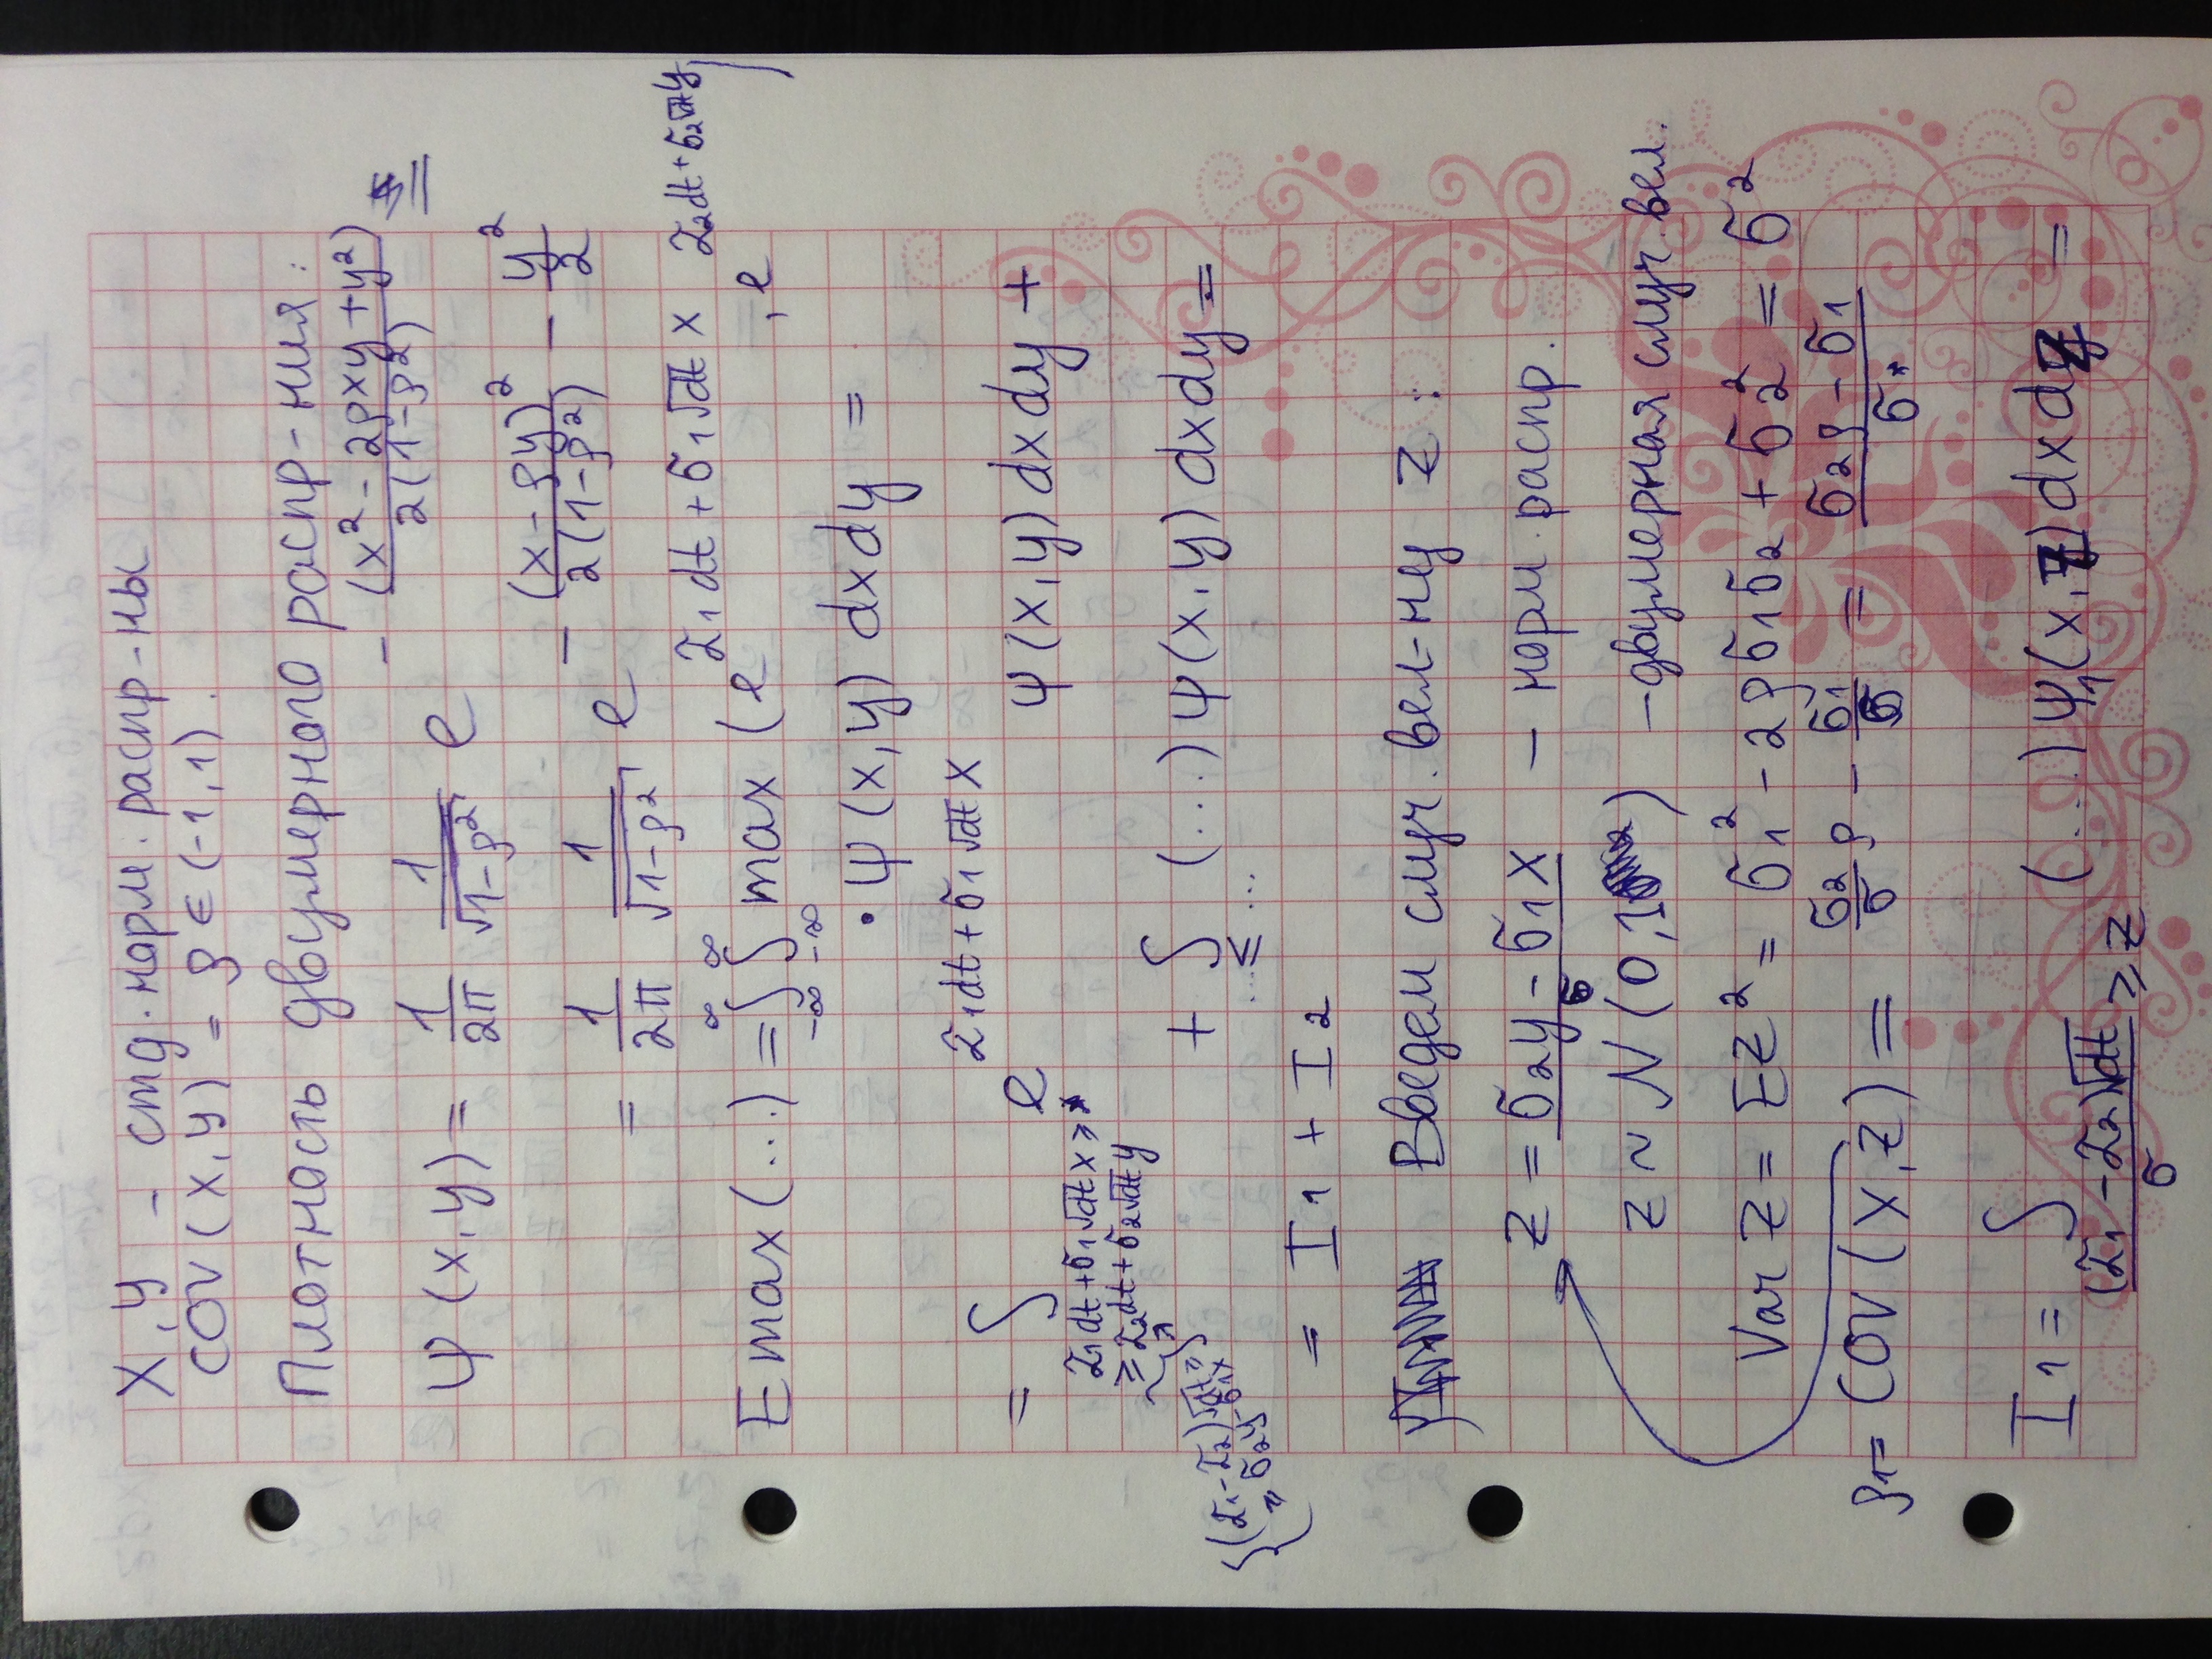 X, y – стд. норм. распр-ны
cov (x, y) = ρ ∈ (-1, 1).
Плотность двумерного распр-ния:
ψ(x, y) = 1/2π 1/√(1-ρ²) e^{-(x² - 2ρxy + y²)/2(1-ρ²)} =
= 1/2π 1/√(1-ρ²) e^{-(x-ρy)²/2(1-ρ²) - y²/2}
E max (...) = ∫_{-∞}^{∞} ∫_{-∞}^{∞} max (e^{Σ₁dt + σ₁√dt x}, e^{Σ₂dt + σ₂√dt y})
· ψ(x, y) dx dy =
= ∫_{Σ₁dt + σ₁√dt x ≥ ≥ Σ₂dt + σ₂√dt y} e^{Σ₁dt + σ₁√dt x} ψ(x, y) dx dy +
+ ∫_{... ≤ ...} (...) ψ(x, y) dx dy =
{(Σ₁-Σ₂)√dt ≥ ≥ σ₂y - σ₁x}
= I₁ + I₂
Введем случ. вел-ну z :
z = (σ₂y - σ₁x)/σ – норм. распр.
z ~ N (0, 1) – двумерная случ. вел.
Var z = Ez² = σ₁² - 2ρσ₁σ₂ + σ₂² = σ²
ρ₁ = cov (x, z) = σ₂/σ ρ - σ₁/σ = (σ₂ρ - σ₁)/σ
I₁ = ∫_{(Σ₁-Σ₂)√dt/σ ≥ z} (...) ψ₁(x, z) dx dz =